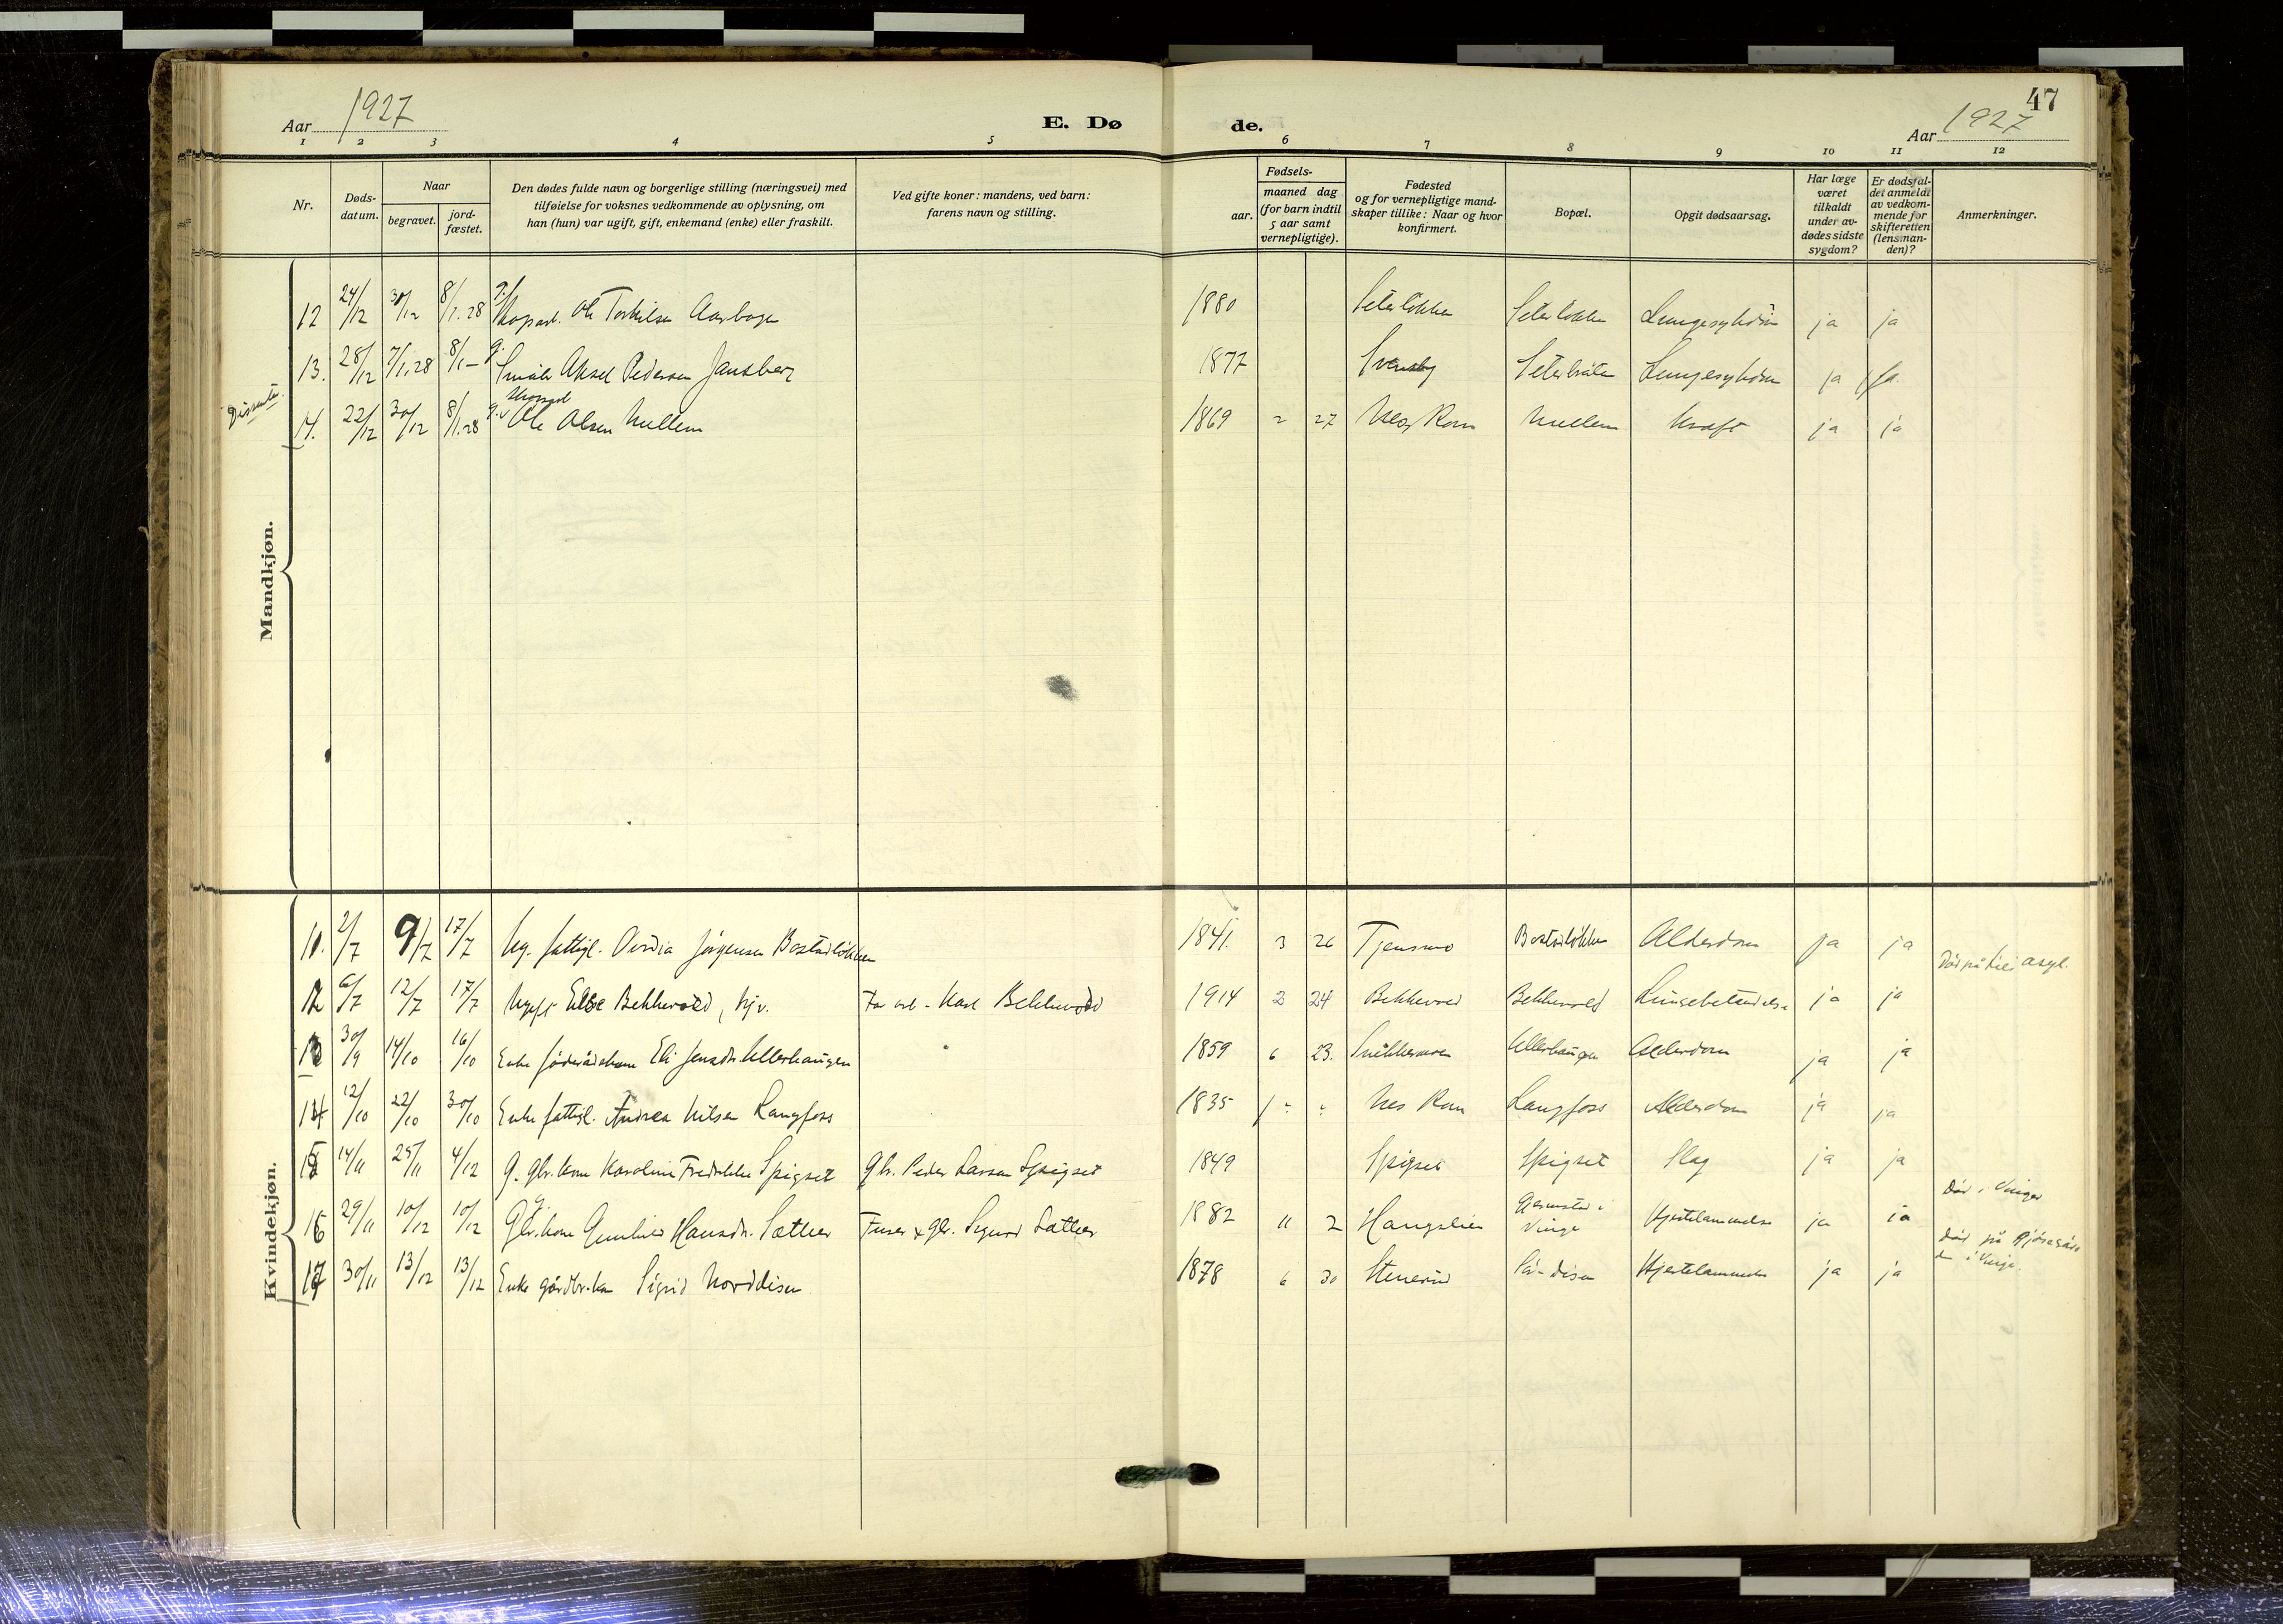 Aar 1927
E. Døde.
47
Aar 1927
1 2 3 4 5 6 7 8 9 10 11 12
Nr.
Døds-
datum.
Naar
begravet.
jord-
fæstet.
Den dødes fulde navn og borgerlige stilling (næringsvei) med
tilføielse for voksnes vedkommende av oplysning, om
han (hun) var ugift, gift, enkemand (enke) eller fraskilt.
Ved gifte koner: mandens, ved barn:
farens navn og stilling.
Fødsels-
aar.
maaned dag
(for barn indtil
5 aar samt
vernepligtige).
Fødested
og for vernepligtige mand-
skaper tillike: Naar og hvor
konfirmert.
Bopæl.
Opgit dødsaarsag.
Har læge
været
tilkaldt
under av-
dødes sidste
sygdom?
Er dødsfal-
det anmeldt
av vedkom-
mende for
skifteretten
(lensman-
den)?
Anmerkninger.
Mandkjøn.
12 24/12 30/12 8/1.28 g. Skogarb. Ole Torkilsen Aasbogen 1880 Seterløkken Seterløkken Lungesykdom ja ja
13. 28/12 7/1.28 8/1 - g. Småbr. Aksel Pedersen Jansberg 1877 Svensby Seterbråten Lungesykdom ja ja
Dissenter.
14. 22/12 30/12 8/1.28 g. Skogarb. Ole Olsen Mellem 1869 2 27 Nes, Rom Mellem Kræft ja ja
Kvindekjøn.
11. 2/7 9/7 17/7 Ug. fattigl. Jørgensen Bostadløkken 1841. 3 26 Tjensmo Bostadløkken Alderdom ja ja Død på asyl.
12 6/7 12/7 17/7 Ugift Else Bekkevold, hjv. Far arb. Karl Bekkevold 1914 2 24 Bekkevold Bekkevold Lungebetændelse ja ja
13 30/9 14/10 16/10 Enke føderådskone Eli Jensdr. Ullerhaugen 1859 6 23. Ullerhaugen Alderdom ja ja
14 12/10 22/10 30/10 Enke fattigl. Andrea Nilsen Langfoss 1835 Nes Rom Langfoss Alderdom ja ja
15 14/11 25/11 4/12 G. gbr. kone Karoline Fredrikke Spigset Gbr. Peder Larsen Spigset 1849 Spigset Spigset Slag ja ja
16 29/11 10/12 10/12 g. Gbr. kone Gunhild Hansdr. Sæther gbr. Sigurd Sæther 1882 11 2 Haugslien i Vinger Hjertelammelse ja ja Død i Vinger
17 30/11 13/12 13/12 Enke gårdbr. kone Sigrid Norddisen 1878 6 30 Stenerud disen Hjertelammelse ja ja Død på i Vinger.